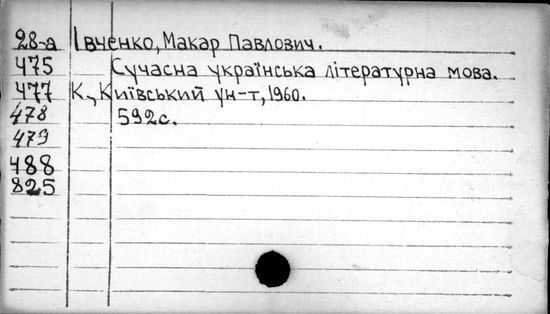 28-а Івченко, Макар Павлович.
475 Сучасна українська літературна мова.
477 К., Київський ун-т, 1960.
478 592с.
479
488
825